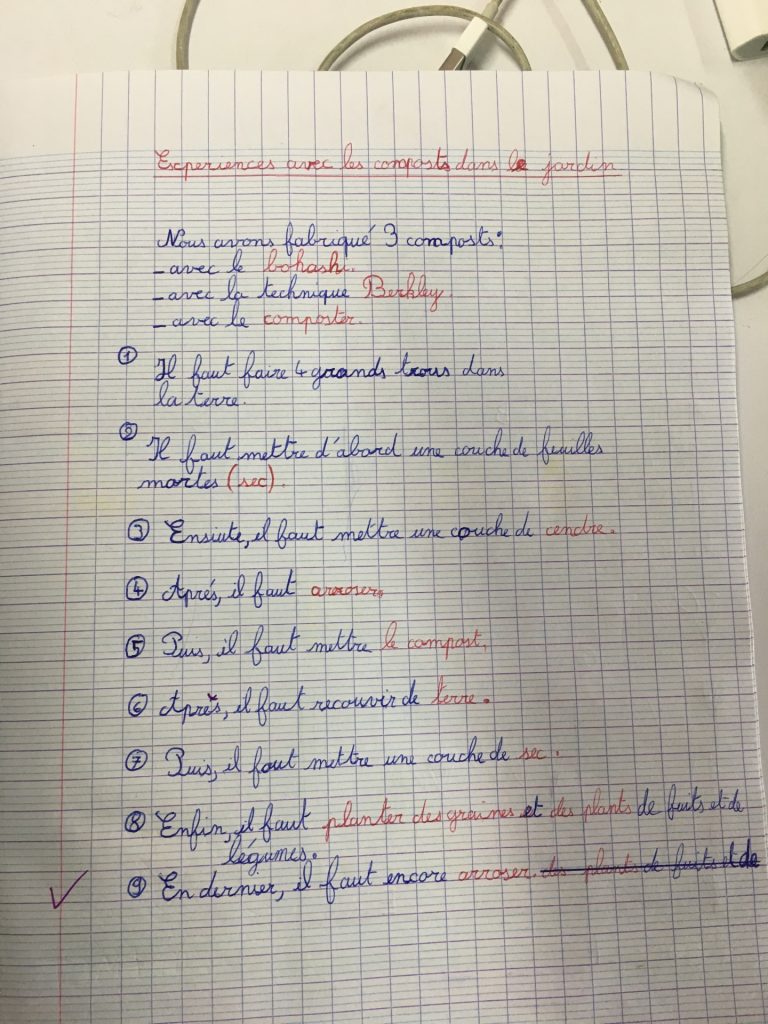 Experiences avec les composts dans le jardin
Nous avons fabriqué 3 composts:
- avec le bohashi.
- avec la technique Berkley.
- avec le composter.
① Il faut faire 4 grands trous dans
la terre.
② Il faut mettre d'abord une couche de feuilles
mortes (sec).
③ Ensiute, il faut mettre une couche de cendre.
④ Aprés, il faut arroser.
⑤ Puis, il faut mettre le compost.
⑥ Après, il faut recouvir de terre.
⑦ Puis, il faut mettre une couche de sec.
⑧ Enfin, il faut planter des graines et des plants de fuits et de
légumes.
⑨ En dernier, il faut encore arroser. des plants de fuits et de